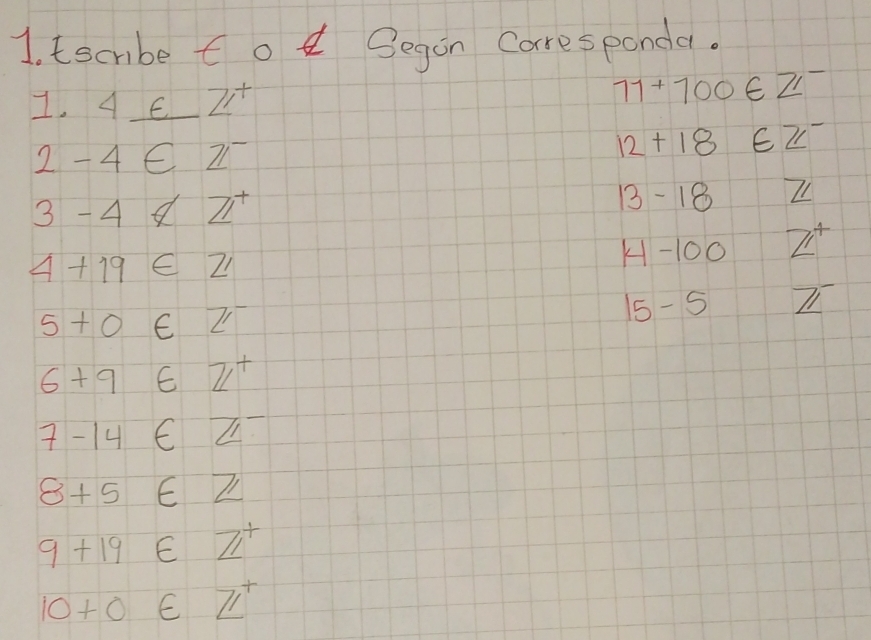 1. Escribe ∈ o ∉ Según Corresponda.
1. 4 ∈ ℤ⁺
2 -4 ∈ ℤ⁻
3 -4 ∉ ℤ⁺
4 +19 ∈ ℤ
5 +0 ∈ ℤ⁻
6 +9 ∈ ℤ⁺
7 -14 ∈ ℤ⁻
8 +5 ∈ ℤ
9 +19 ∈ ℤ⁺
10 +0 ∈ ℤ⁺
11 +100 ∈ ℤ⁻
12 +18 ∈ ℤ⁻
13 -18 ℤ
14 -100 ℤ⁺
15 -5 ℤ⁻